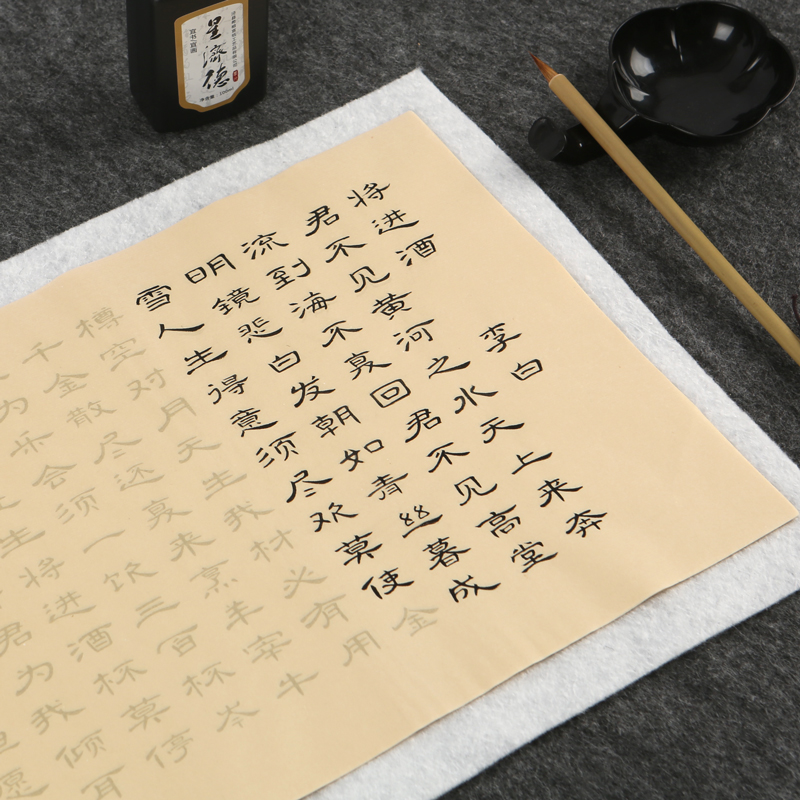 将进酒 李白
君不见黄河之水天上来奔
流到海不复回君不见高堂
明镜悲白发朝如青丝暮成
雪人生得意须尽欢莫使金
樽空对月天生我材必有用
千金散尽还复来烹羊宰牛
为乐会须一饮三百杯岑
生将进酒杯莫停
君为我倾耳
愿
星濟德
宣书/宣画
净含量：100ml